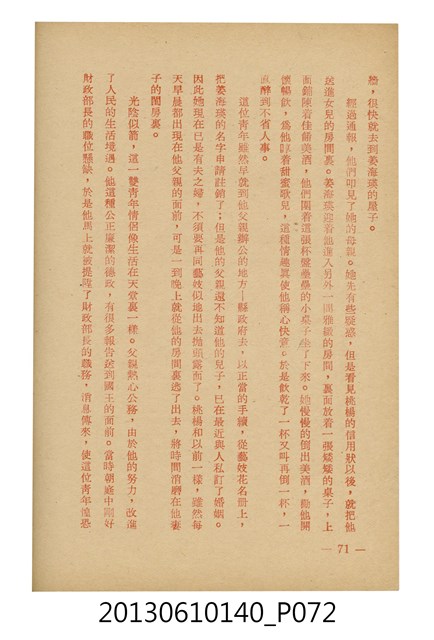 牆，很快就去到姜海瑛的屋子。
經過通報，他們叩見了她的母親。她先有些疑惑，但是看見桃楊的信用狀以後，就把他
送進女兒的房間裏。姜海瑛迎着他進入另外一間雅緻的房間，裏面放着一張矮矮的桌子，上
面鋪陳着佳餚美酒，他們閙着這張杯盤壘壘的小桌子坐了下來。她慢慢的倒出美酒，勸他開
懷暢飲，爲他唱着甜蜜歌兒，這種情趣眞使他稱心快意。於是飲乾了一杯又叫再倒一杯，一
直醉到不省人事。
這位靑年雖然早就到他父親辦公的地方—縣政府去，以正當的手續，從藝妓花名冊上，
把姜海瑛的名字申請註銷了；但是他的父親還不知道他的兒子，已在最近與人私訂了婚姻。
因此她現在已是有夫之婦，不須要再同藝妓似地出去拋頭露面了。桃楊和以前一樣，雖然每
天早晨都出現在他父親的面前，可是一到晚上就從他的房間裏逃了出去，將時間消磨在他妻
子的閨房裏。
光陰似箭，這一雙靑年情侶像生活在天堂裏一樣。父親熱心公務，由於他的努力，改進
了人民的生活境遇。他這種公正廉潔的德政，有很多報告送到國王的面前。當時朝庭中剛好
財政部長的職位懸缺，於是他馬上就被提陞了財政部長的職務，消息傳來，使這位靑年惶恐
— 71 —
20130610140_P072